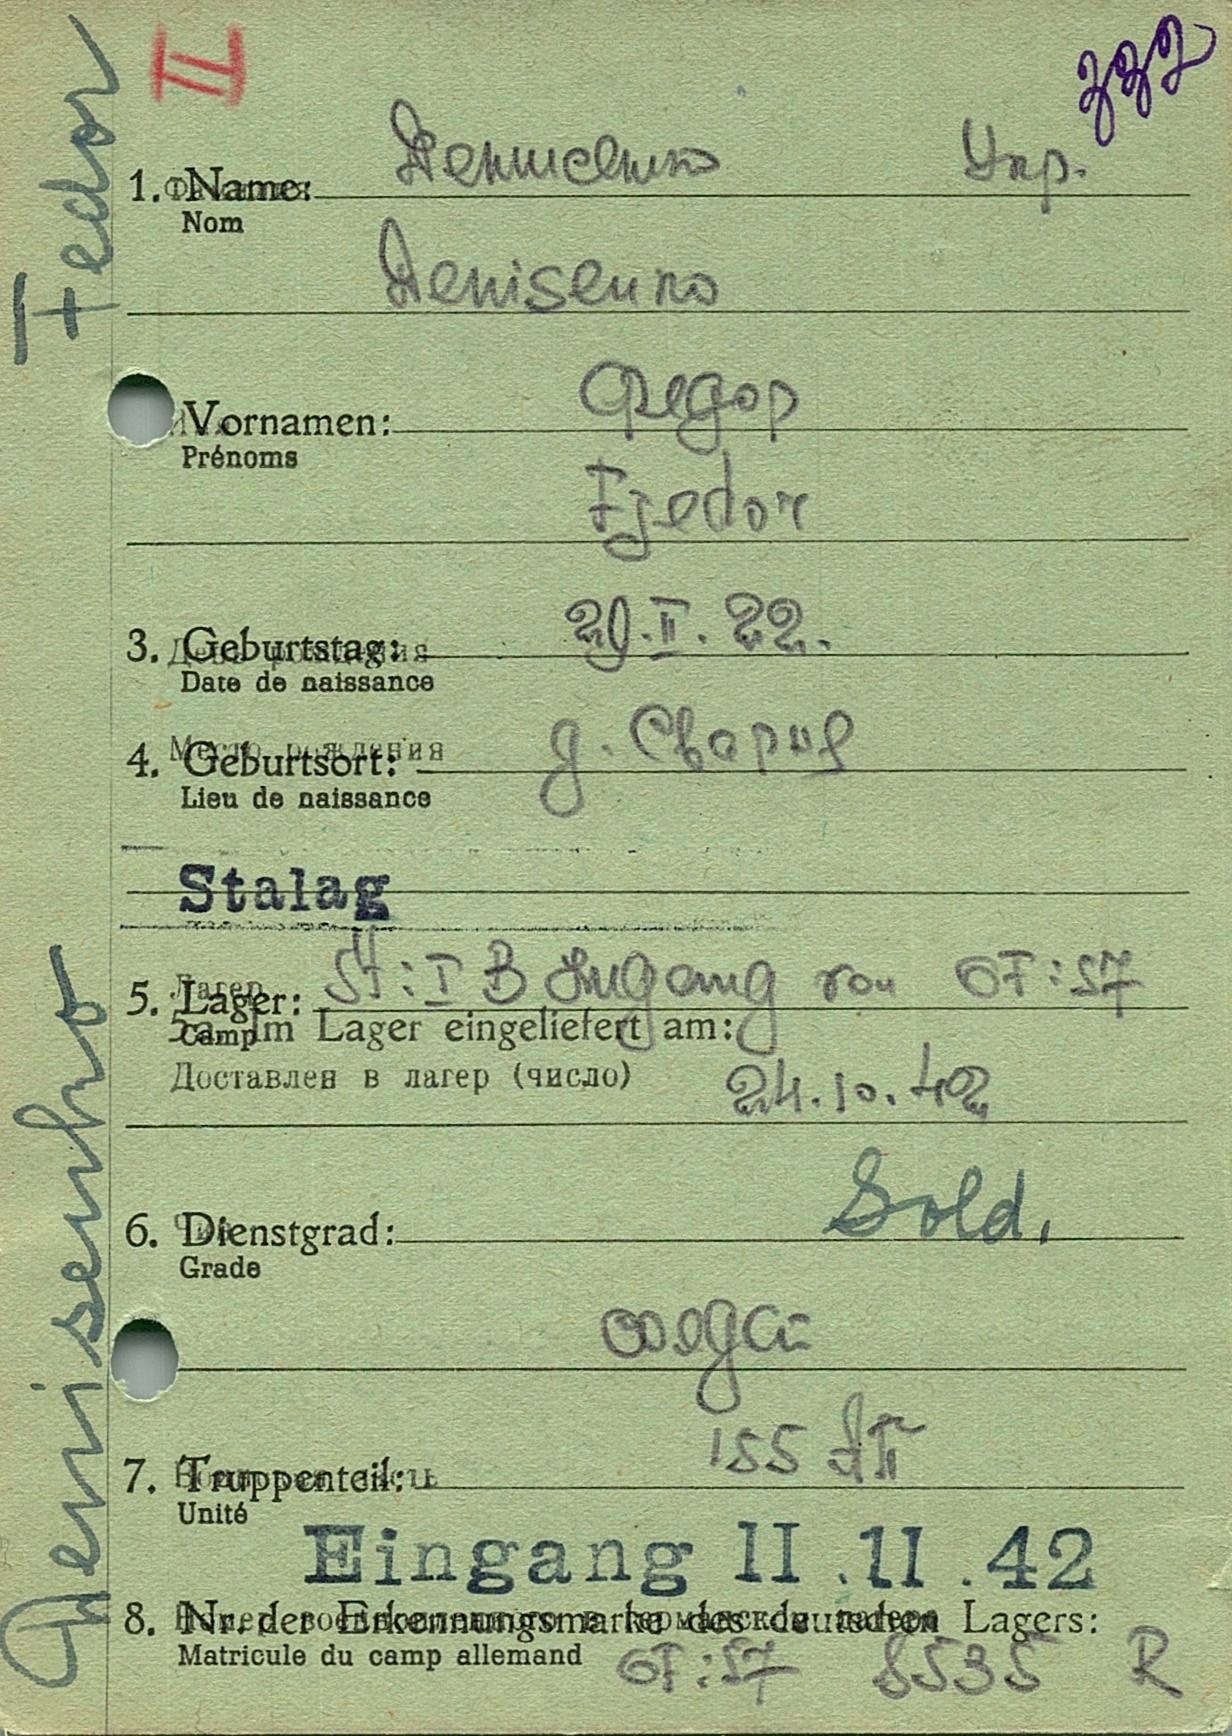 II
1. Name: Денисенко Укр.
Фамилия
Nom
Denisenko
Vornamen: Федор
Prénoms
Fjedor
3. Geburtstag: 29.II.22.
День рождения
Date de naissance
4. Geburtsort: д. Свария
Место рождения
Lieu de naissance
Stalag
5. Lager: St: I B Zugang von OF:57
Лагер
Camp
5a. Im Lager eingeliefert am:
Доставлен в лагер (число) 24.10.42
6. Dienstgrad: Sold.
Grade
7. Truppenteil: 155
Unité
Eingang 11.11.42
8. Nr. der Erkennungsmarke des deutschen Lagers:
Matricule du camp allemand OF:57 8535 R
Denisenko Fedor